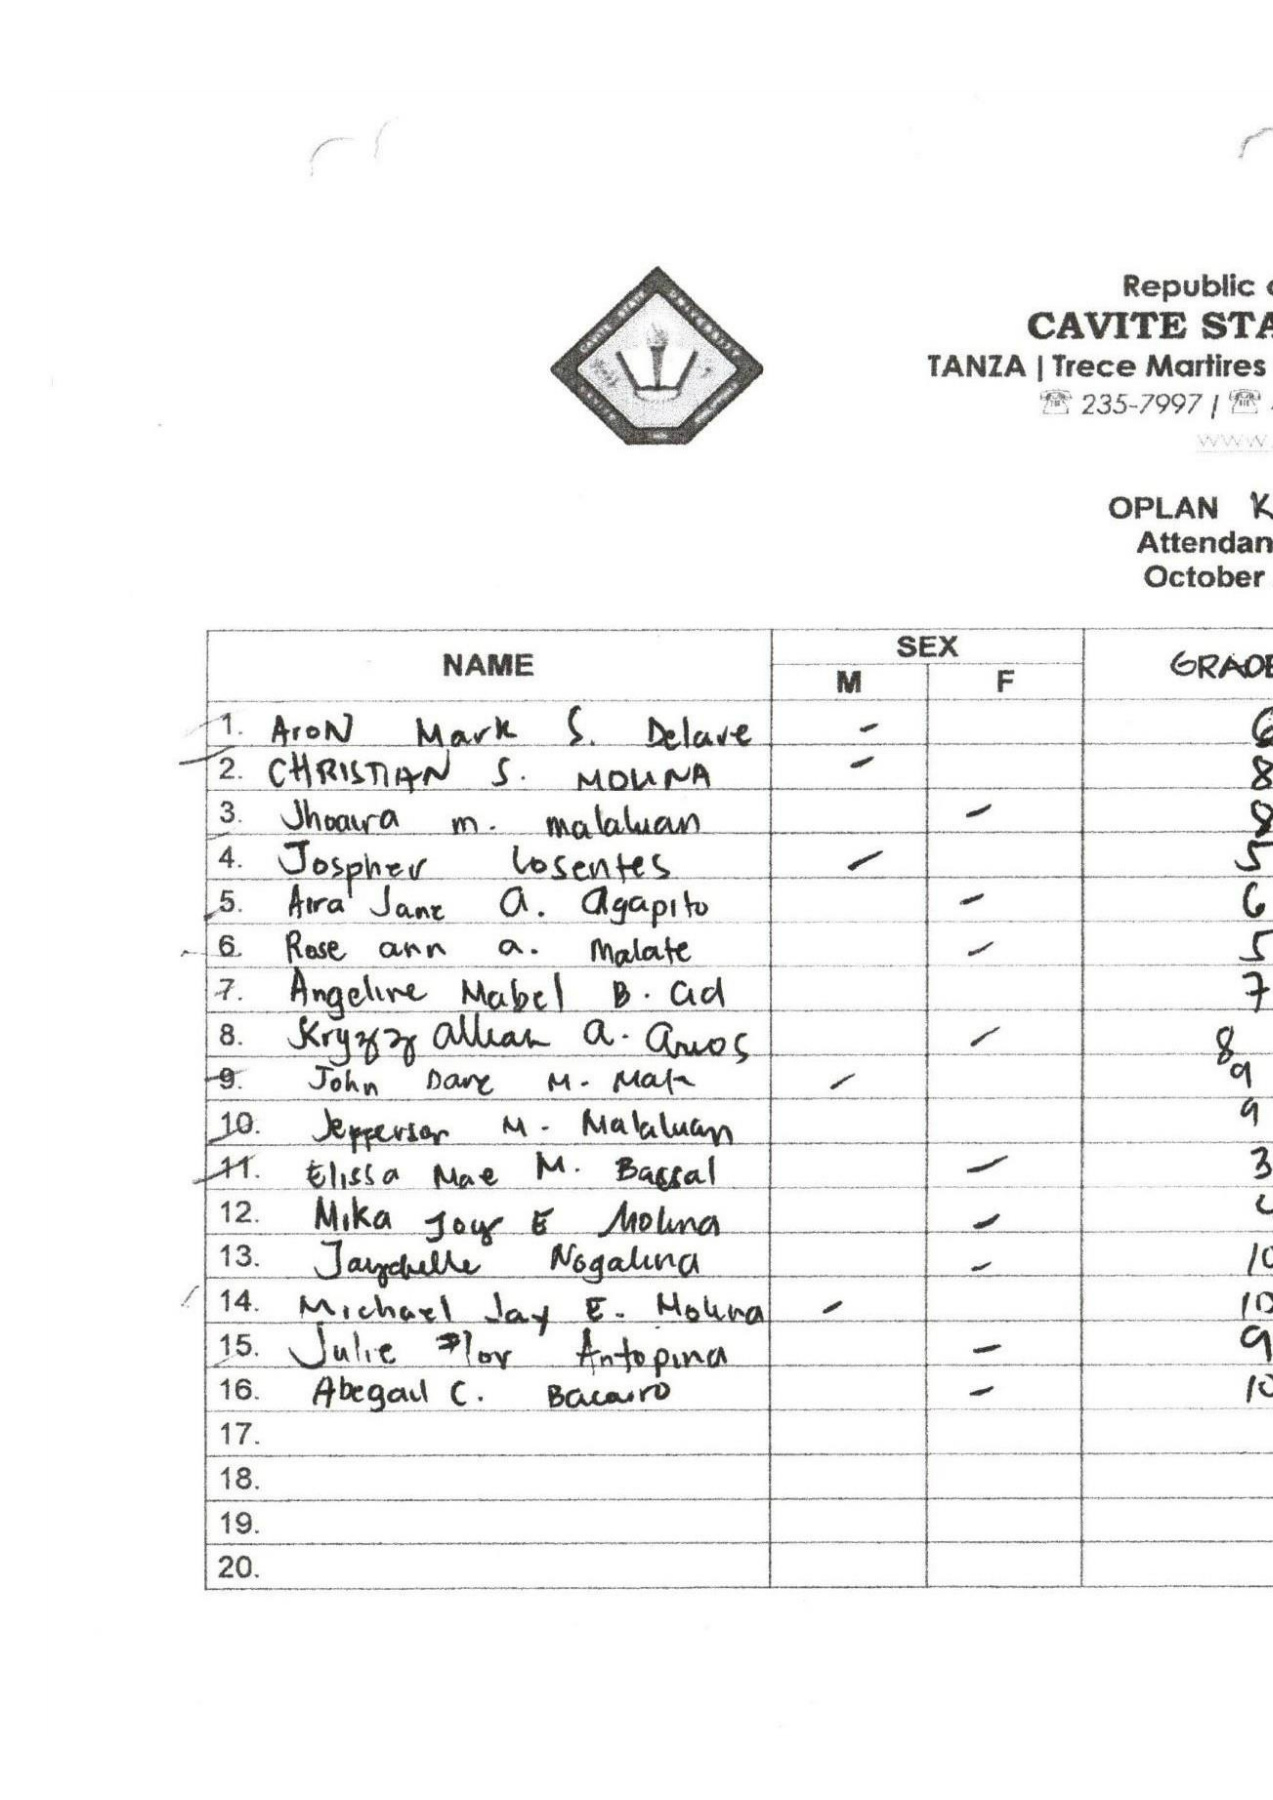 Republic
CAVITE STA
TANZA | Trece Martires
☎ 235-7997 | ☎
www.
OPLAN K
Attendan
October
NAME SEX GRADE
M F
1. Aron Mark S. Delave - 6
2. CHRISTIAN S. MOLINA - 8
3. Jhoaira m. malaluan - 8
4. Jospher Losentes - 5
5. Aira Jane A. Agapito - 6
6. Rose ann a. Malate - 5
7. Angeline Mabel B. Cid 7
8. Kryzyz a. - 8
9. John Dave M. - 9
10. Jepperson M. Malaluan 9
11. Elissa Mae M. Bassal - 3
12. Mika Joy E Molina -
13. Jaychelle Nogalina - 10
14. Michael Jay E. Molina - 10
15. Julie Flor Antopina - 9
16. Abegail C. Bacairo - 10
17.
18.
19.
20.